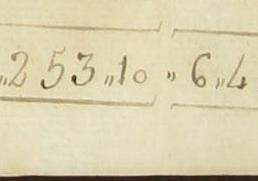 „253„10„6„4